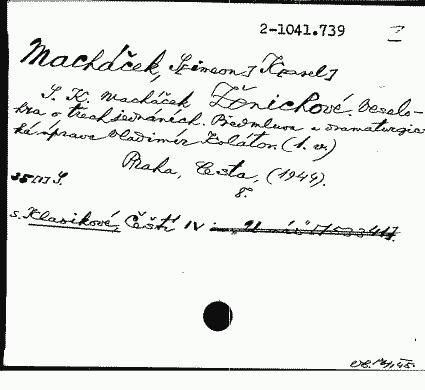 2-1041.739
Macháček, S[imeon] K[arel]
S. K. Macháček Ženichové. Veselo-
hra o třech jednáních. Předmluva a dramaturgic-
ká úprava Vladimír Kolátor. (1. vyd.)
Praha, Cesta, (1944).
8.
35 [1] S.
s. Klasikové Čeští IV